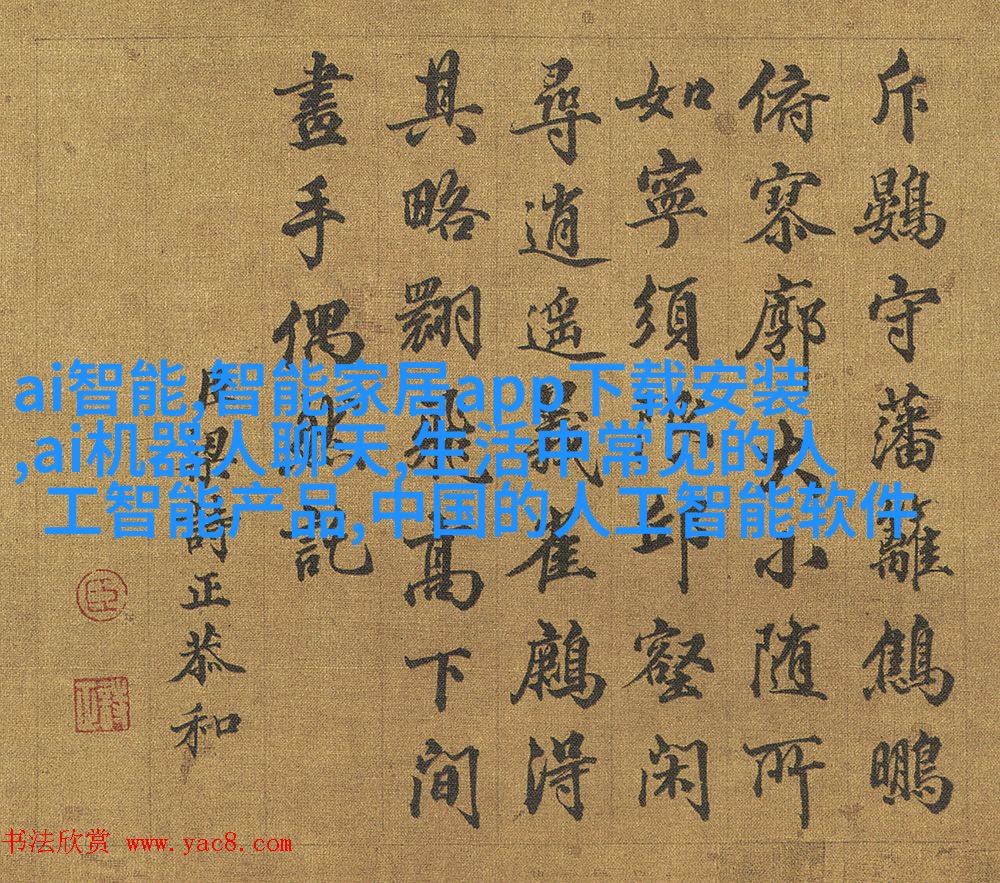 斥鷃守藩籬鷦鵬
俯寥廓大小随所
如寧須邱壑閑
尋逍遥義雀得
其略翾飛高下間
畫手偶能託
臣梁詩正恭和
臣
ai智能,智能家居app下载安装
,ai机器人聊天,生活中常见的人
工智能产品,中国的人工智能软件
书法欣赏 www.yac8.com